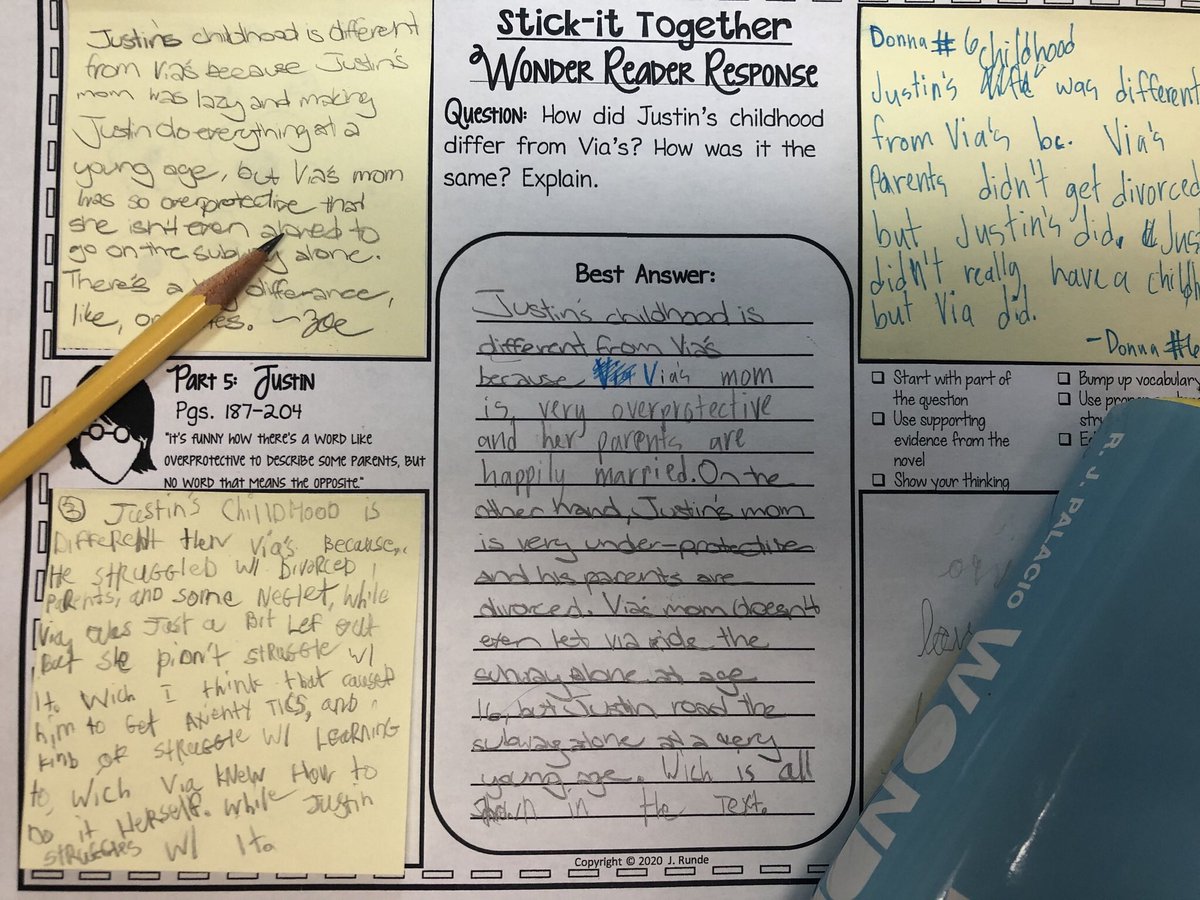 Justin's childhood is different
from Via's because Justin's
mom was lazy and making
Justin do everything at a
young age, but Via's mom
was so overprotective that
she isn't even alowed to
go on the subway alone.
There's a differance,
like, ~Zoe
Stick-it Together
Wonder Reader Response
Question: How did Justin's childhood
differ from Via's? How was it the
same? Explain.
Donna #6 childhood
Justin's was different
from Via's bc. Via's
Parents didn't get divorced
but Justin's did. Just
didn't really have a childh
but Via did.
-Donna #6
Best Answer:
Justin's childhood is
different from Via's
because Via's mom
is very overprotective
and her parents are
happily married. On the
other hand, Justin's mom
is very under-protective
and his parents are
divorced. Via's mom doesn't
even let via ride the
subway alone at age
16, but Justin road the
subway alone at a very
young age. Wich is all
in the Text.
Part 5: Justin
Pgs. 187-204
"It's funny how there's a word like
overprotective to describe some parents, but
no word that means the opposite."
Start with part of
the question
Use supporting
evidence from the
novel
Show your thinking
Bump up vocabulary
Use
3 Justin's ChildHood is
Different then Via's Because,
He struggled w/ Divorced
Parents, and some Neglet, while
Via was Just a Bit Lef out
But she didn't struggle w/
It. Wich I think that caused
him to Get Axienty Tics, and
kind of struggle w/ Learning
to, wich Via knew How to
Do it Herself. while Justin
struggles w/ It.
R. J. PALACIO WOND
Copyright © 2020 J. Runde